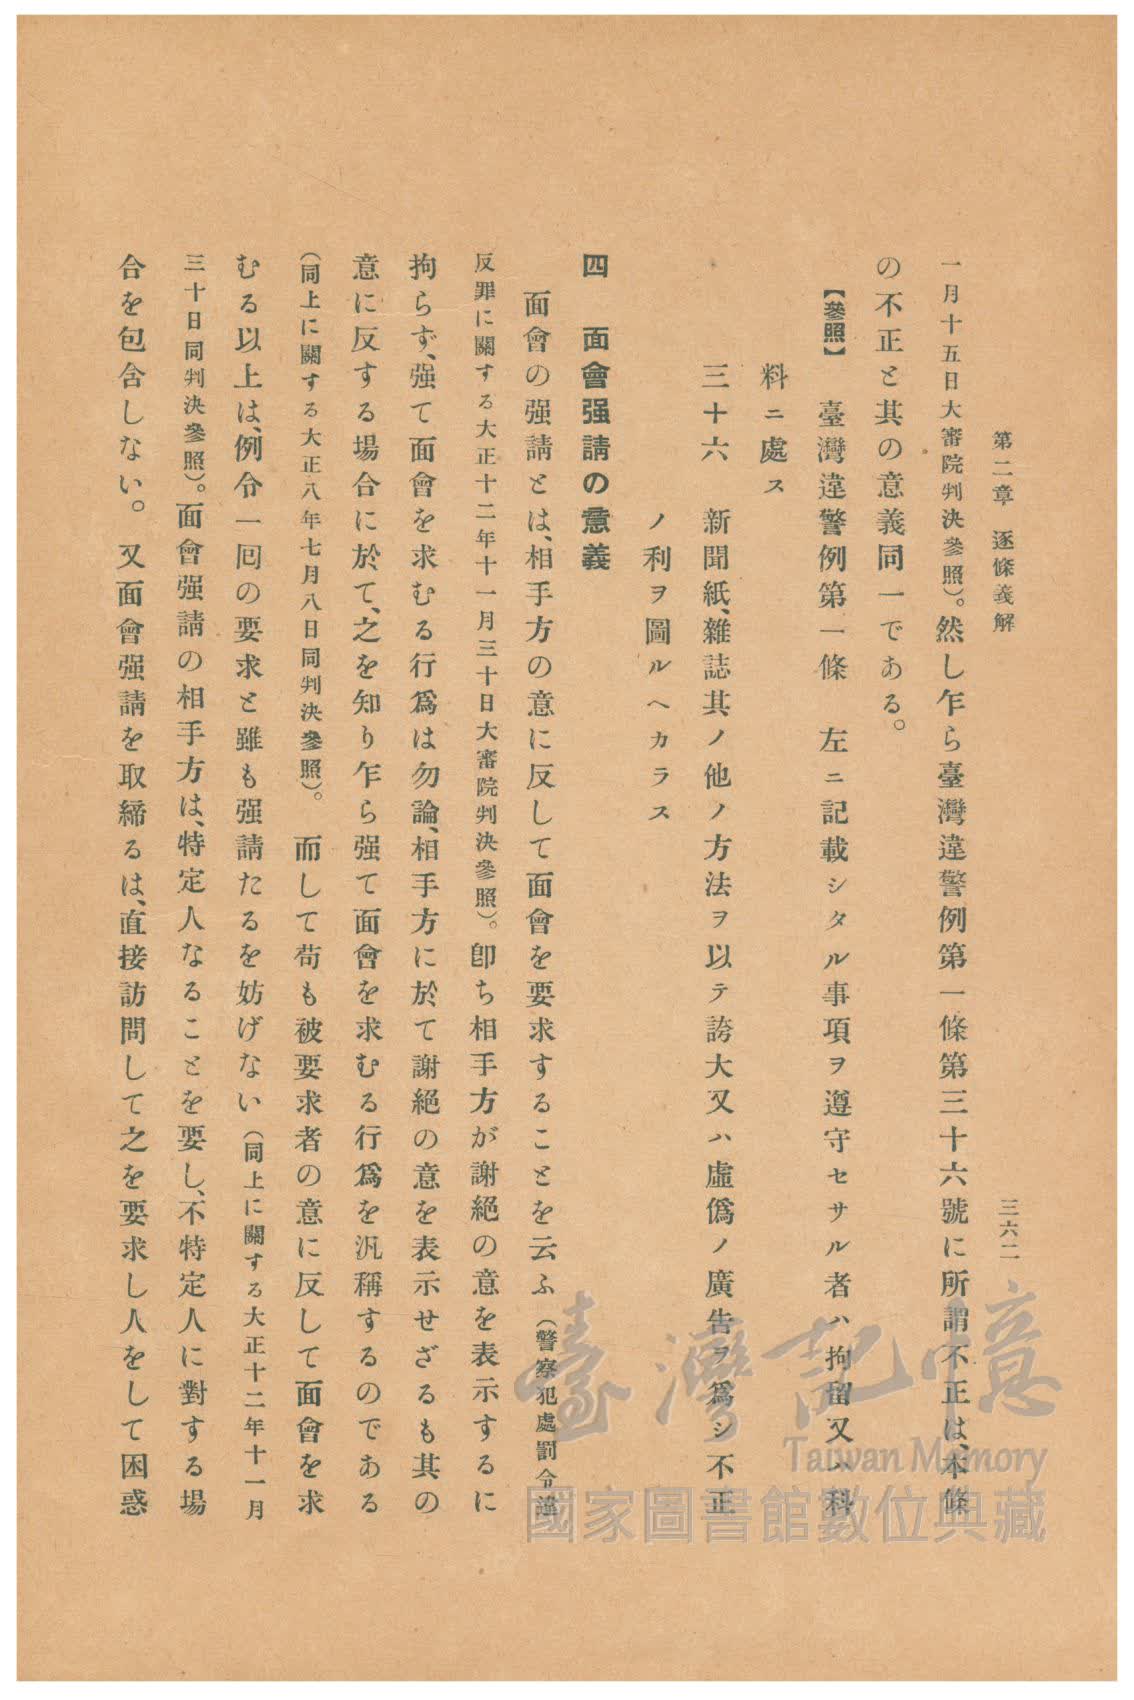 第二章　逐條義解
三六二
一月十五日大審院判決參照）。然し乍ら臺灣違警例第一條第三十六號に所謂不正は、本條
の不正と其の意義同一である。
【參照】　臺灣違警例第一條　左ニ記載シタル事項ヲ遵守セサル者ハ拘留又ハ科
料ニ處ス
三十六　新聞紙、雜誌其ノ他ノ方法ヲ以テ誇大又ハ虛僞ノ廣告ヲ爲シ不正
ノ利ヲ圖ルヘカラス
四　面會强請の意義
面會の强請とは、相手方の意に反して面會を要求することを云ふ（警察犯處罰令違
反罪に關する大正十二年十一月三十日大審院判決參照）。卽ち相手方が謝絕の意を表示するに
拘らず、强て面會を求むる行爲は勿論、相手方に於て謝絕の意を表示せざるも其の
意に反する場合に於て、之を知り乍ら强て面會を求むる行爲を汎稱するのである
（同上に關する大正八年七月八日同判決參照）。　而して苟も被要求者の意に反して面會を求
むる以上は、例令一囘の要求と雖も强請たるを妨げない（同上に關する大正十二年十一月
三十日同判決參照）。面會强請の相手方は、特定人なることを要し、不特定人に對する場
合を包含しない。又面會强請を取締るは、直接訪問して之を要求し人をして困惑
臺灣記憶
Taiwan Memory
國家圖書館數位典藏